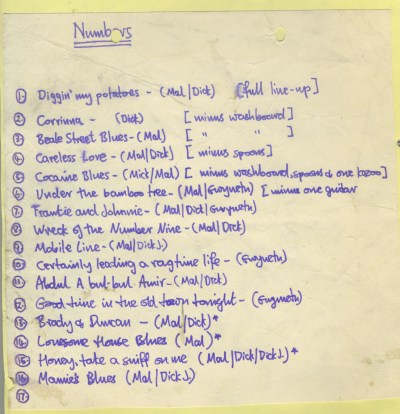 Numbers
① Diggin' my potatoes - (Mal/Dick) [full line-up]
② Corrinna - (Dick) [minus washboard]
③ Beale Street Blues - (Mal) [ " " ]
④ Careless Love - (Mal/Dick) [minus spoons]
⑤ Cocaine Blues - (Mick/Mal) [minus washboard, spoons & one kazoo]
⑥ Under the bamboo tree - (Mal/Gwyneth) [minus one guitar
⑦ Frankie and Johnnie - (Mal/Dick/Gwyneth)
⑧ Wreck of the Number Nine - (Mal/Dick)
⑨ Mobile Line - (Mal/Dick J.)
⑩ Certainly leading a ragtime life - (Gwyneth)
⑪ Abdul A bul-bul Amir - (Mal/Dick)
⑫ Good time in the old town tonight - (Gwyneth)
⑬ Brady & Duncan - (Mal/Dick)*
⑭ Lonesome House Blues (Mal)*
⑮ Honey, take a sniff on me (Mal/Dick/Dick J.)*
⑯ Mamie's Blues (Mal/Dick J.)
⑰